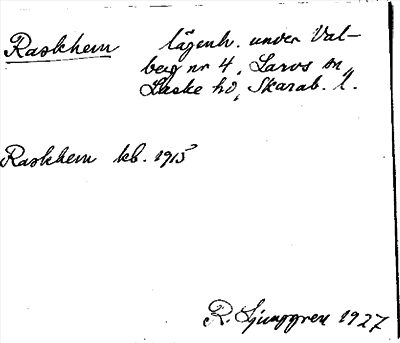 Raskhem lägenh. under Val-
berg nr 4, Larvs sn,
Laske hd, Skarab. l.
Raskhem kb. 1915
R. Ljunggren 1927